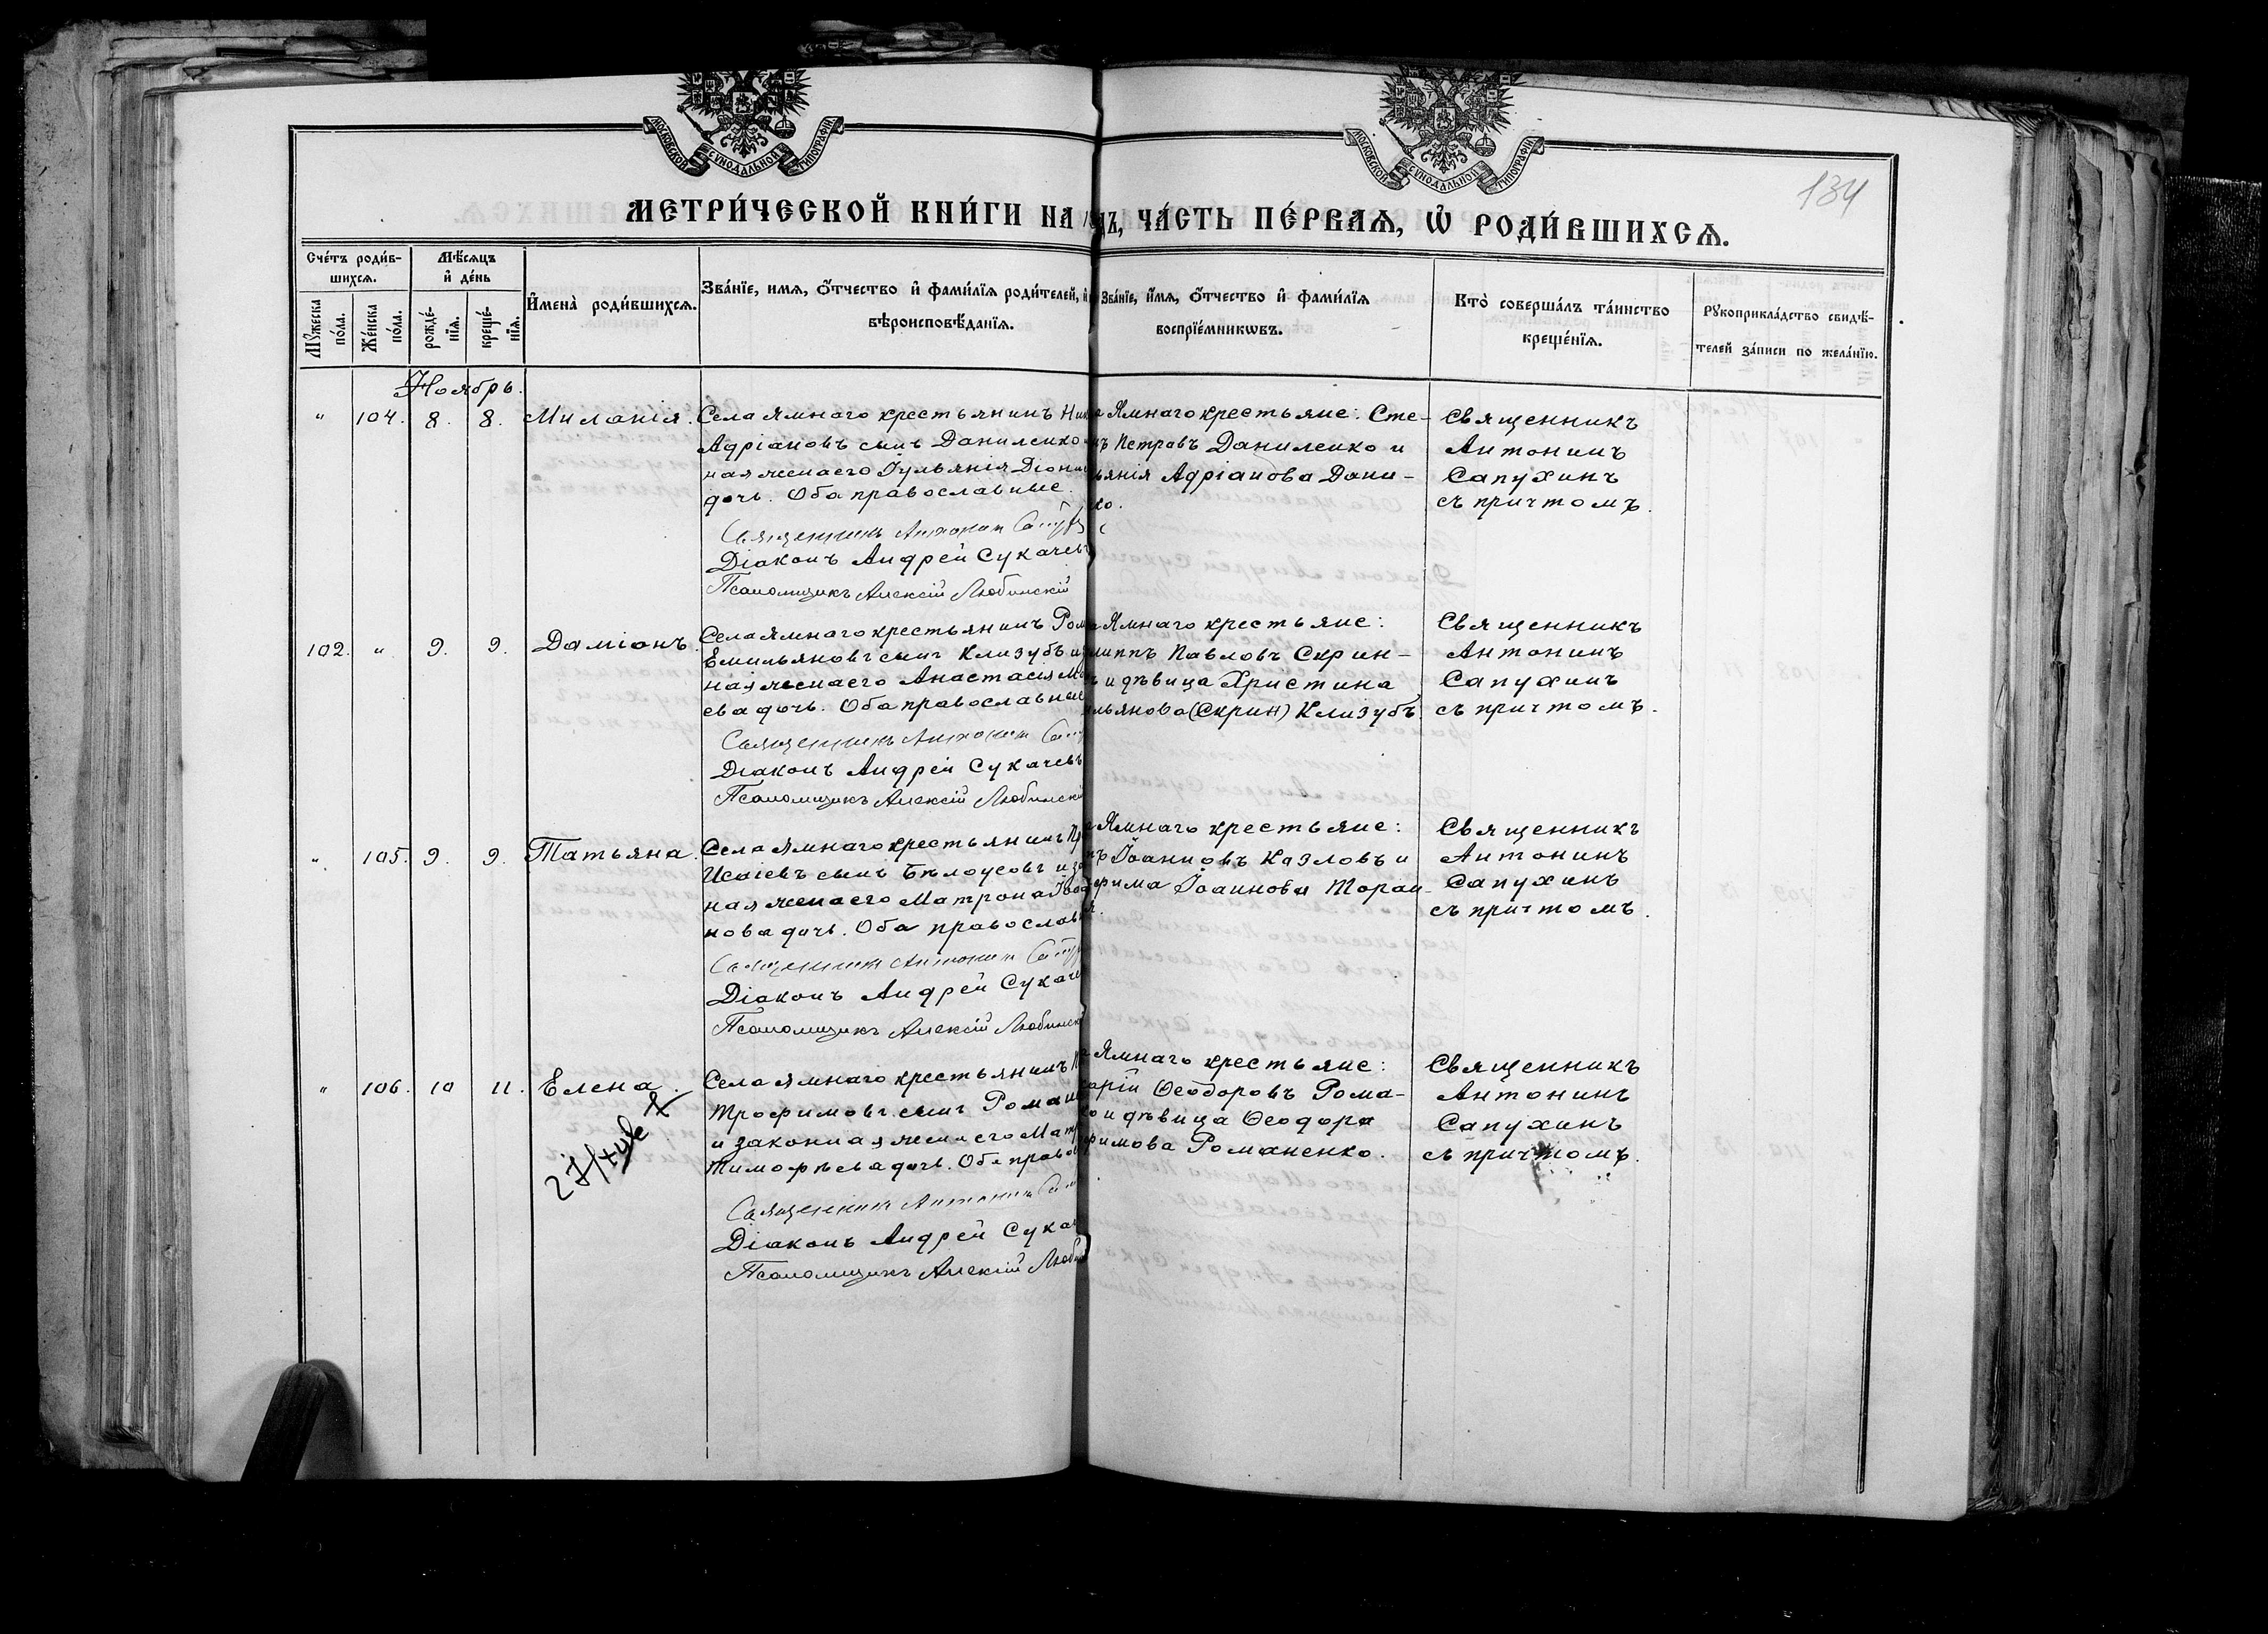 МОСКОВСКОЙ СУНОДАЛЬНОЙ ТИПОГРАФІИ
МОСКОВСКОЙ СУНОДАЛЬНОЙ ТИПОГРАФІИ
134
МЕТРИ́ЧЕСКОЙ КНИ́ГИ НА ЧА́СТЬ ПЕ́РВАѦ, Ѽ РОДИ́ВШИХСѦ.
Сче́тъ роди́в-
шихсѧ.
Мѣ́сѧцъ
и҆ де́нь
Мꙋ́жеска
по́ла.
Же́нска
по́ла.
рожде́-
нїѧ.
креще́-
нїѧ.
И҆мена̀ роди́вшихсѧ.
Зва́нїе, имѧ, ѻ҆́тчество и҆ фами́лїѧ роди́телей, и҆
вѣроисповѣ́данїѧ.
Зва́нїе, и҆́мѧ, ѻ҆́тчество и҆ фами́лїѧ
воспрїе́мникѡвъ.
Кто̀ соверша́лъ та́инство
креще́нїѧ.
Рꙋкоприкла́дство свидѣ́-
телей за́писи по жела́нїю.
Ноябрь.
" 104. 8. 8. Миланія.
Села Ямнаго крестьянинъ
Адріановъ сынъ Даниленко
ная жена его Іульянія
дочь. Оба православные.
Священникъ Антонин
Діаконъ Андрей Сукачевъ
Псаломщикъ Алексій Любинскій
Ямнаго крестьяне: Сте-
Петровъ Даниленко и
Адріанова Дани-
Священникъ
Антонинъ
Сапухинъ
съ причтомъ.
102. " 9. 9. Даміонъ.
Села Ямнаго крестьянинъ
Емильяновъ сынъ Клизубъ
ная жена его Анастасія
ева дочь. Оба православные
Священникъ Антонин
Діаконъ Андрей Сукачевъ
Псаломщикъ Алексій Любинскій
Ямнаго крестьяне:
Павловъ Скрин-
и дѣвица Христина
(Скрин) Клизубъ
Священникъ
Антонинъ
Сапухинъ
съ причтомъ.
" 105. 9. 9. Татьяна.
Села Ямнаго крестьянинъ
Исаіевъ сынъ Бѣлоусовъ
ная жена его Матрона
нова дочь. Оба
Священникъ Антонин
Діаконъ Андрей
Псаломщикъ Алексій
Ямнаго крестьяне:
Іоанновъ Казловъ и
Іоаннова Торан-
Священникъ
Антонинъ
Сапухинъ
съ причтомъ.
" 106. 10 11. Елена.
Села Ямнаго крестьянинъ
Трофимовъ сынъ
и законная жена его
Тимофѣева дочь. Оба
Священникъ Антонин
Діаконъ Андрей
Псаломщикъ Алексій
Ямнаго крестьяне:
Ѳеодоровъ Рома-
и дѣвица Ѳеодора
Романенко.
Священникъ
Антонинъ
Сапухинъ
съ причтомъ.